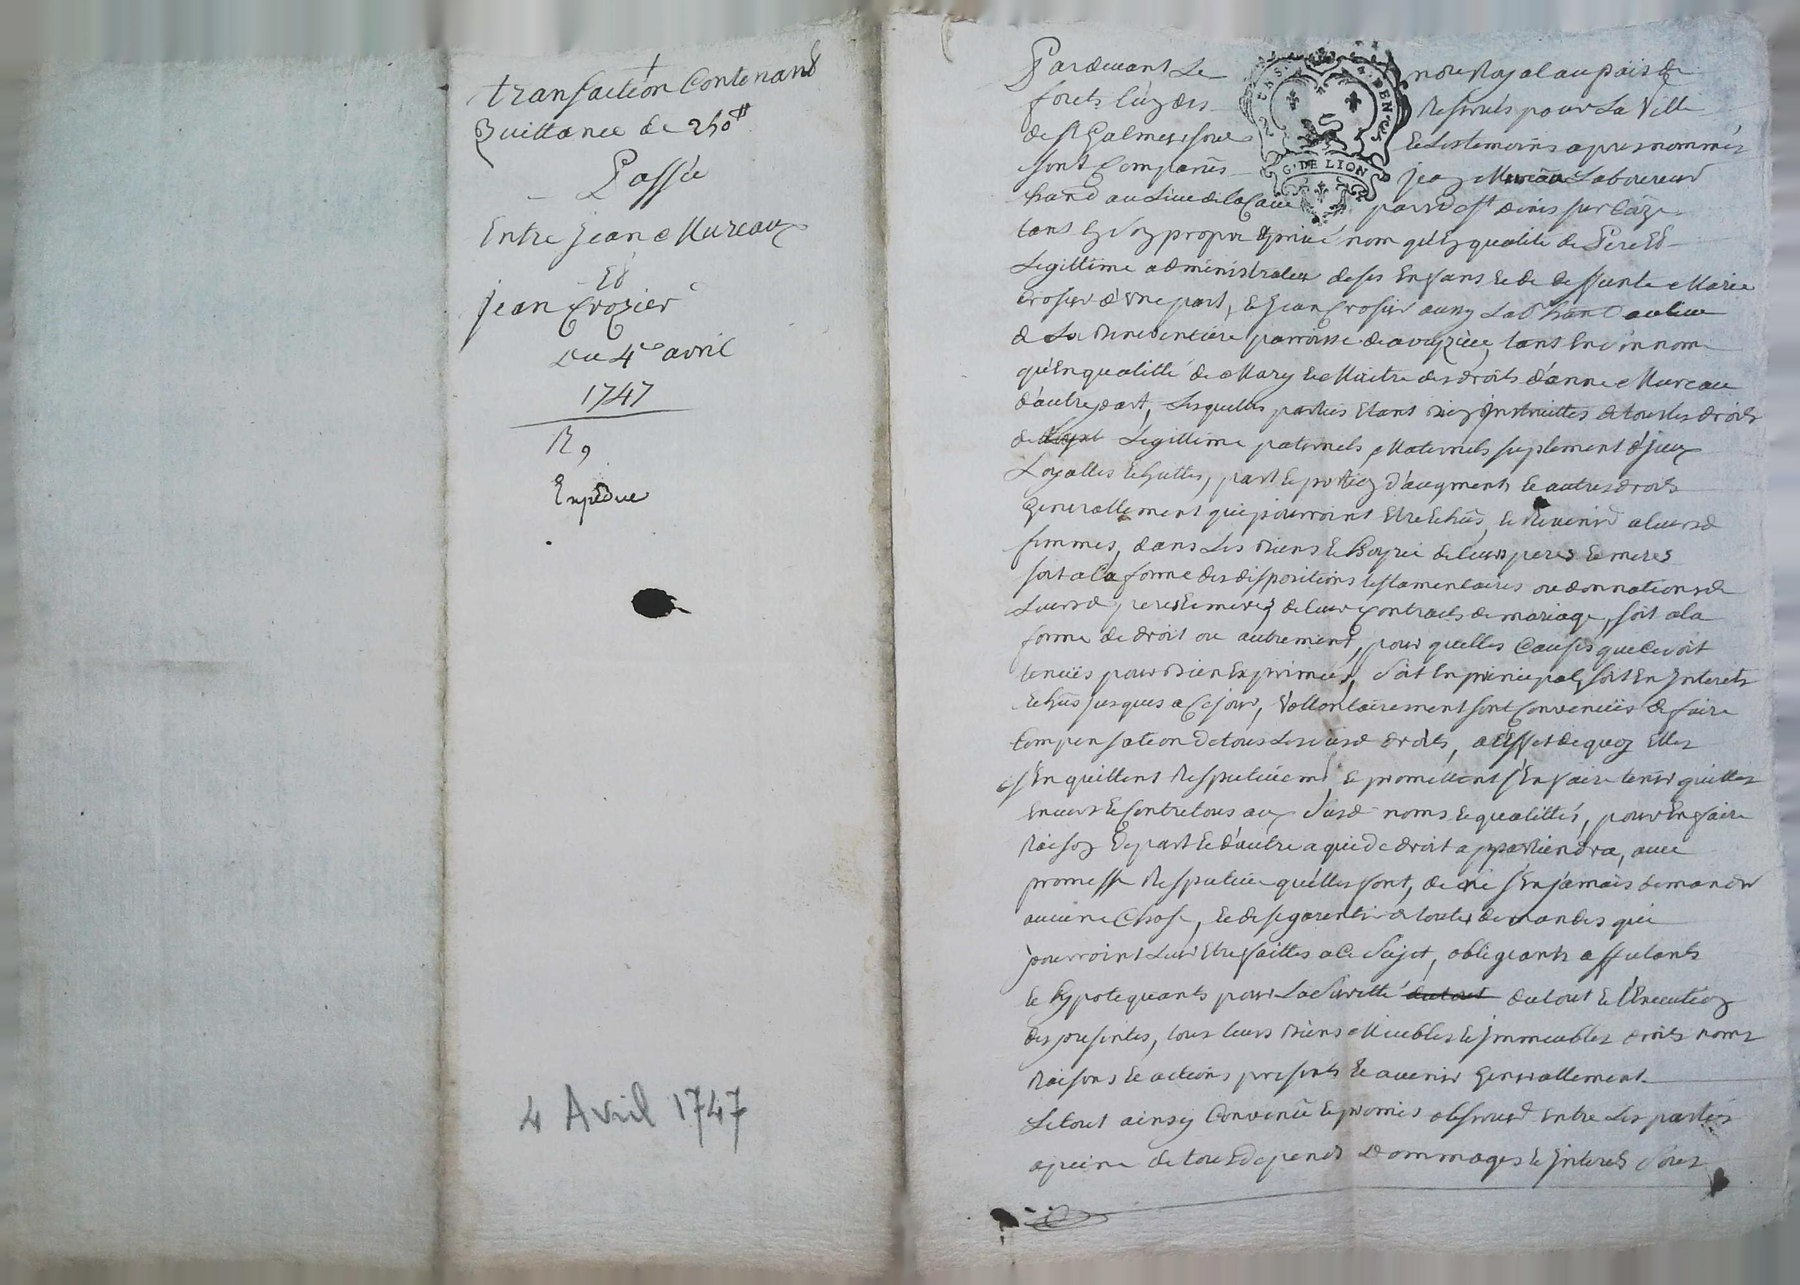 transaction Contenant
Quittance de 250#
Passée
Entre Jean Mureau
Et
jean Crozier
du 4e avril
1747
R,
Expediée
4 Avril 1747
Pardevant Le nore Royal au païs de
forets Reservés pour La Ville
de st Galmier et Les temoins apres nommés
sont Comparus jean Mureau Laboureur
tant En son propre & privé nom qu'En qualité de Pere Et
Legittime administrateur de ses Enfans & de deffunte Marie
Crosier d'Une part, & Jean Crosier aussy Lab
de La paroisse de tant En son nom
qu'En qualitté de Mary & Maitre des droits d'anne Mureau
d'autre part, Lesquelles parties Etant bien Instruittes de tous les droits
de Légittime paternels Maternels suplement d'jceux
part & portion d'augment & autres droits
generallement qui pourroint Etre Echus, & Revenir a leursd
femmes, dans Les biens & hoyrie de leurs peres & meres
soit a La forme des dispositions testamentaires ou donnations de
Leursd peres & meres de leur Contracts de mariage, soit a la
forme de droit ou autrement, pour quelles Causes que Ce soit
tenuës pour bien Exprimées, soit En principal, soit En Interets
Echus jusques a Ce jour, Vollontairement sont Convenuës de faire
Compensation de tous Leursusd droits, a l'Effet de quoy Elles
s'En quittent Respectivemt, & promettent s'En faire tenir quittes
Envers & Contre tous aux susd noms & qualittés, pour En faire
Raison de part & d'autre a qui de droit appartiendra, avec
promesse Respective qu'elles font, de ne s'En jamais demander
aucune Chose, & de se garentir de toutes demandes qui
pourroint Leur Etre faittes a Ce Sujet, obligeants affectants
& hypotequants pour La Suretté du tout & l'Execution
des presentes, tous leurs biens Meubles & Immeubles droits noms
Raisons & actions presents & avenir generallement
Le tout ainsy Convenu & promis observer Entre Les parties
a peine de tous depends Dommages & Interets Sous
G. DE LION